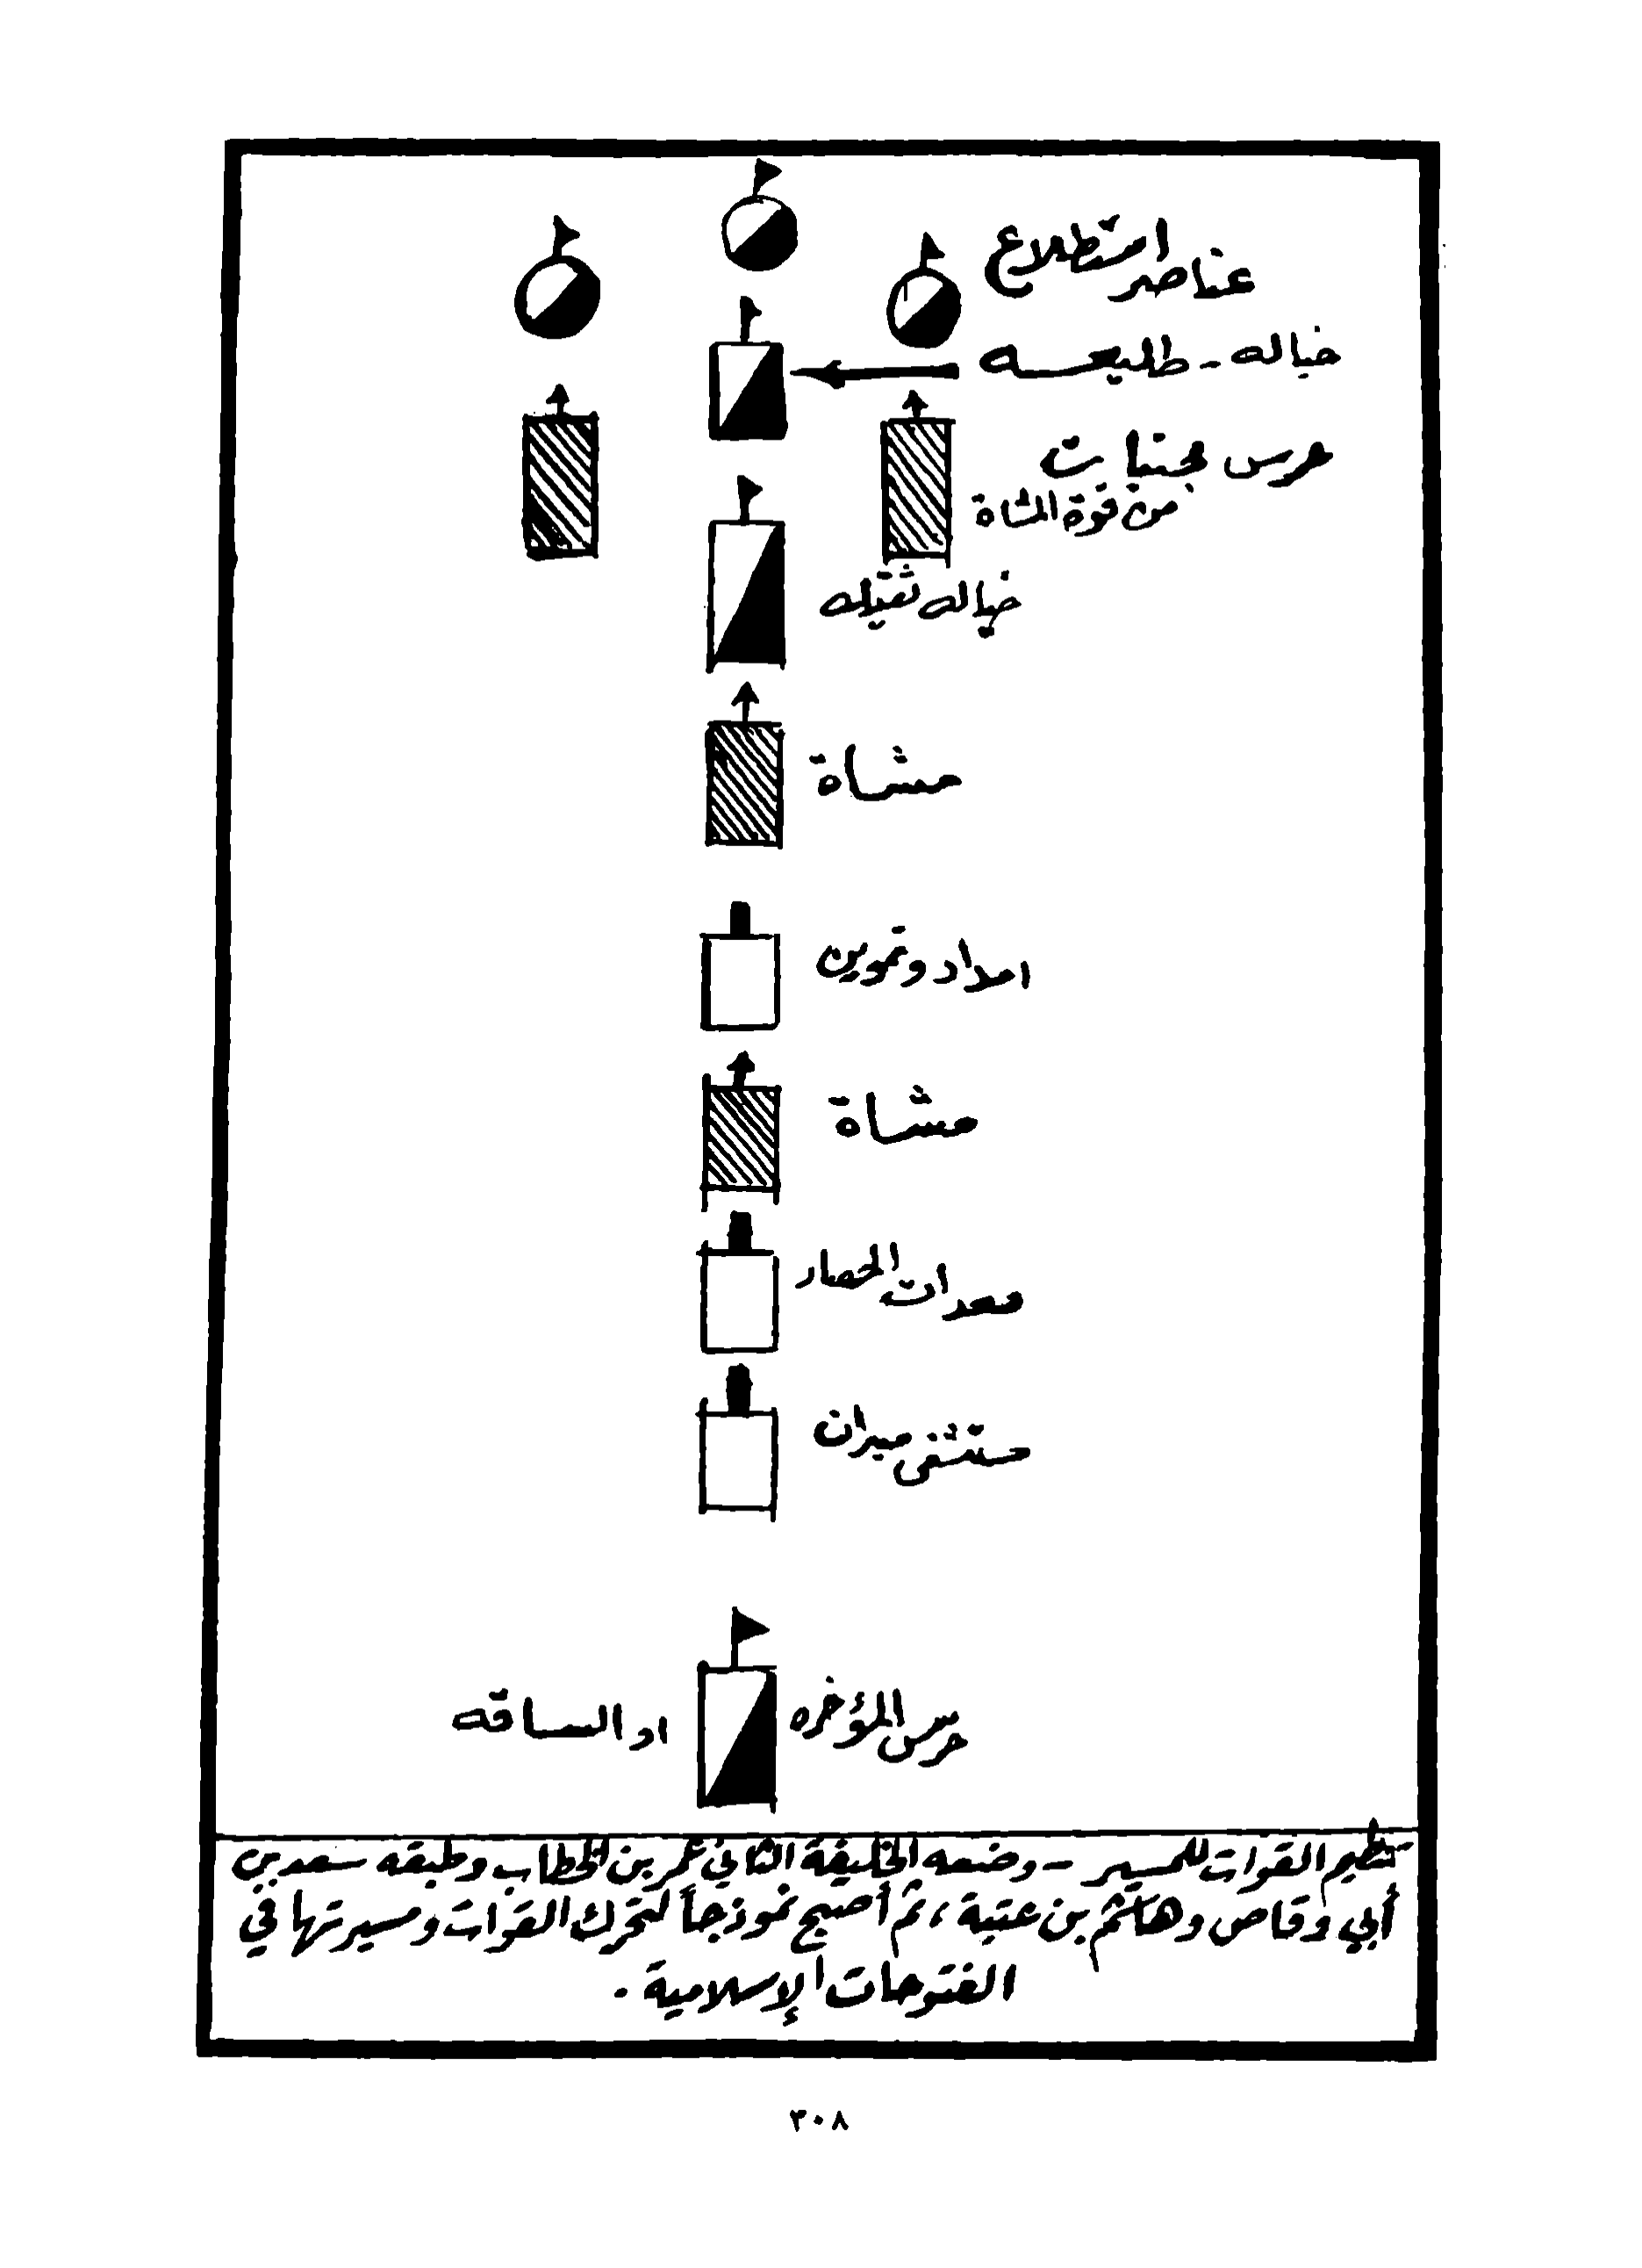 عناصر استطلاع
خياله - طليعه
حرس مجنبات
من قوة المشاة
خياله ثقيله
مشاة
امداد وتموين
مشاة
معدات الحصار
مستشفى ميدان
حرس المؤخره
او الساقه
تنظيم القوات للمسير - وضعه الخليفة الثاني عمر بن الخطاب وطبقه سعد بن
أبي وقاص وهاشم بن عتبة، ثم أصبح نموذجاً لتحرك القوات ومسيرتها في
الفتوحات الإسلامية .
٣٠٨